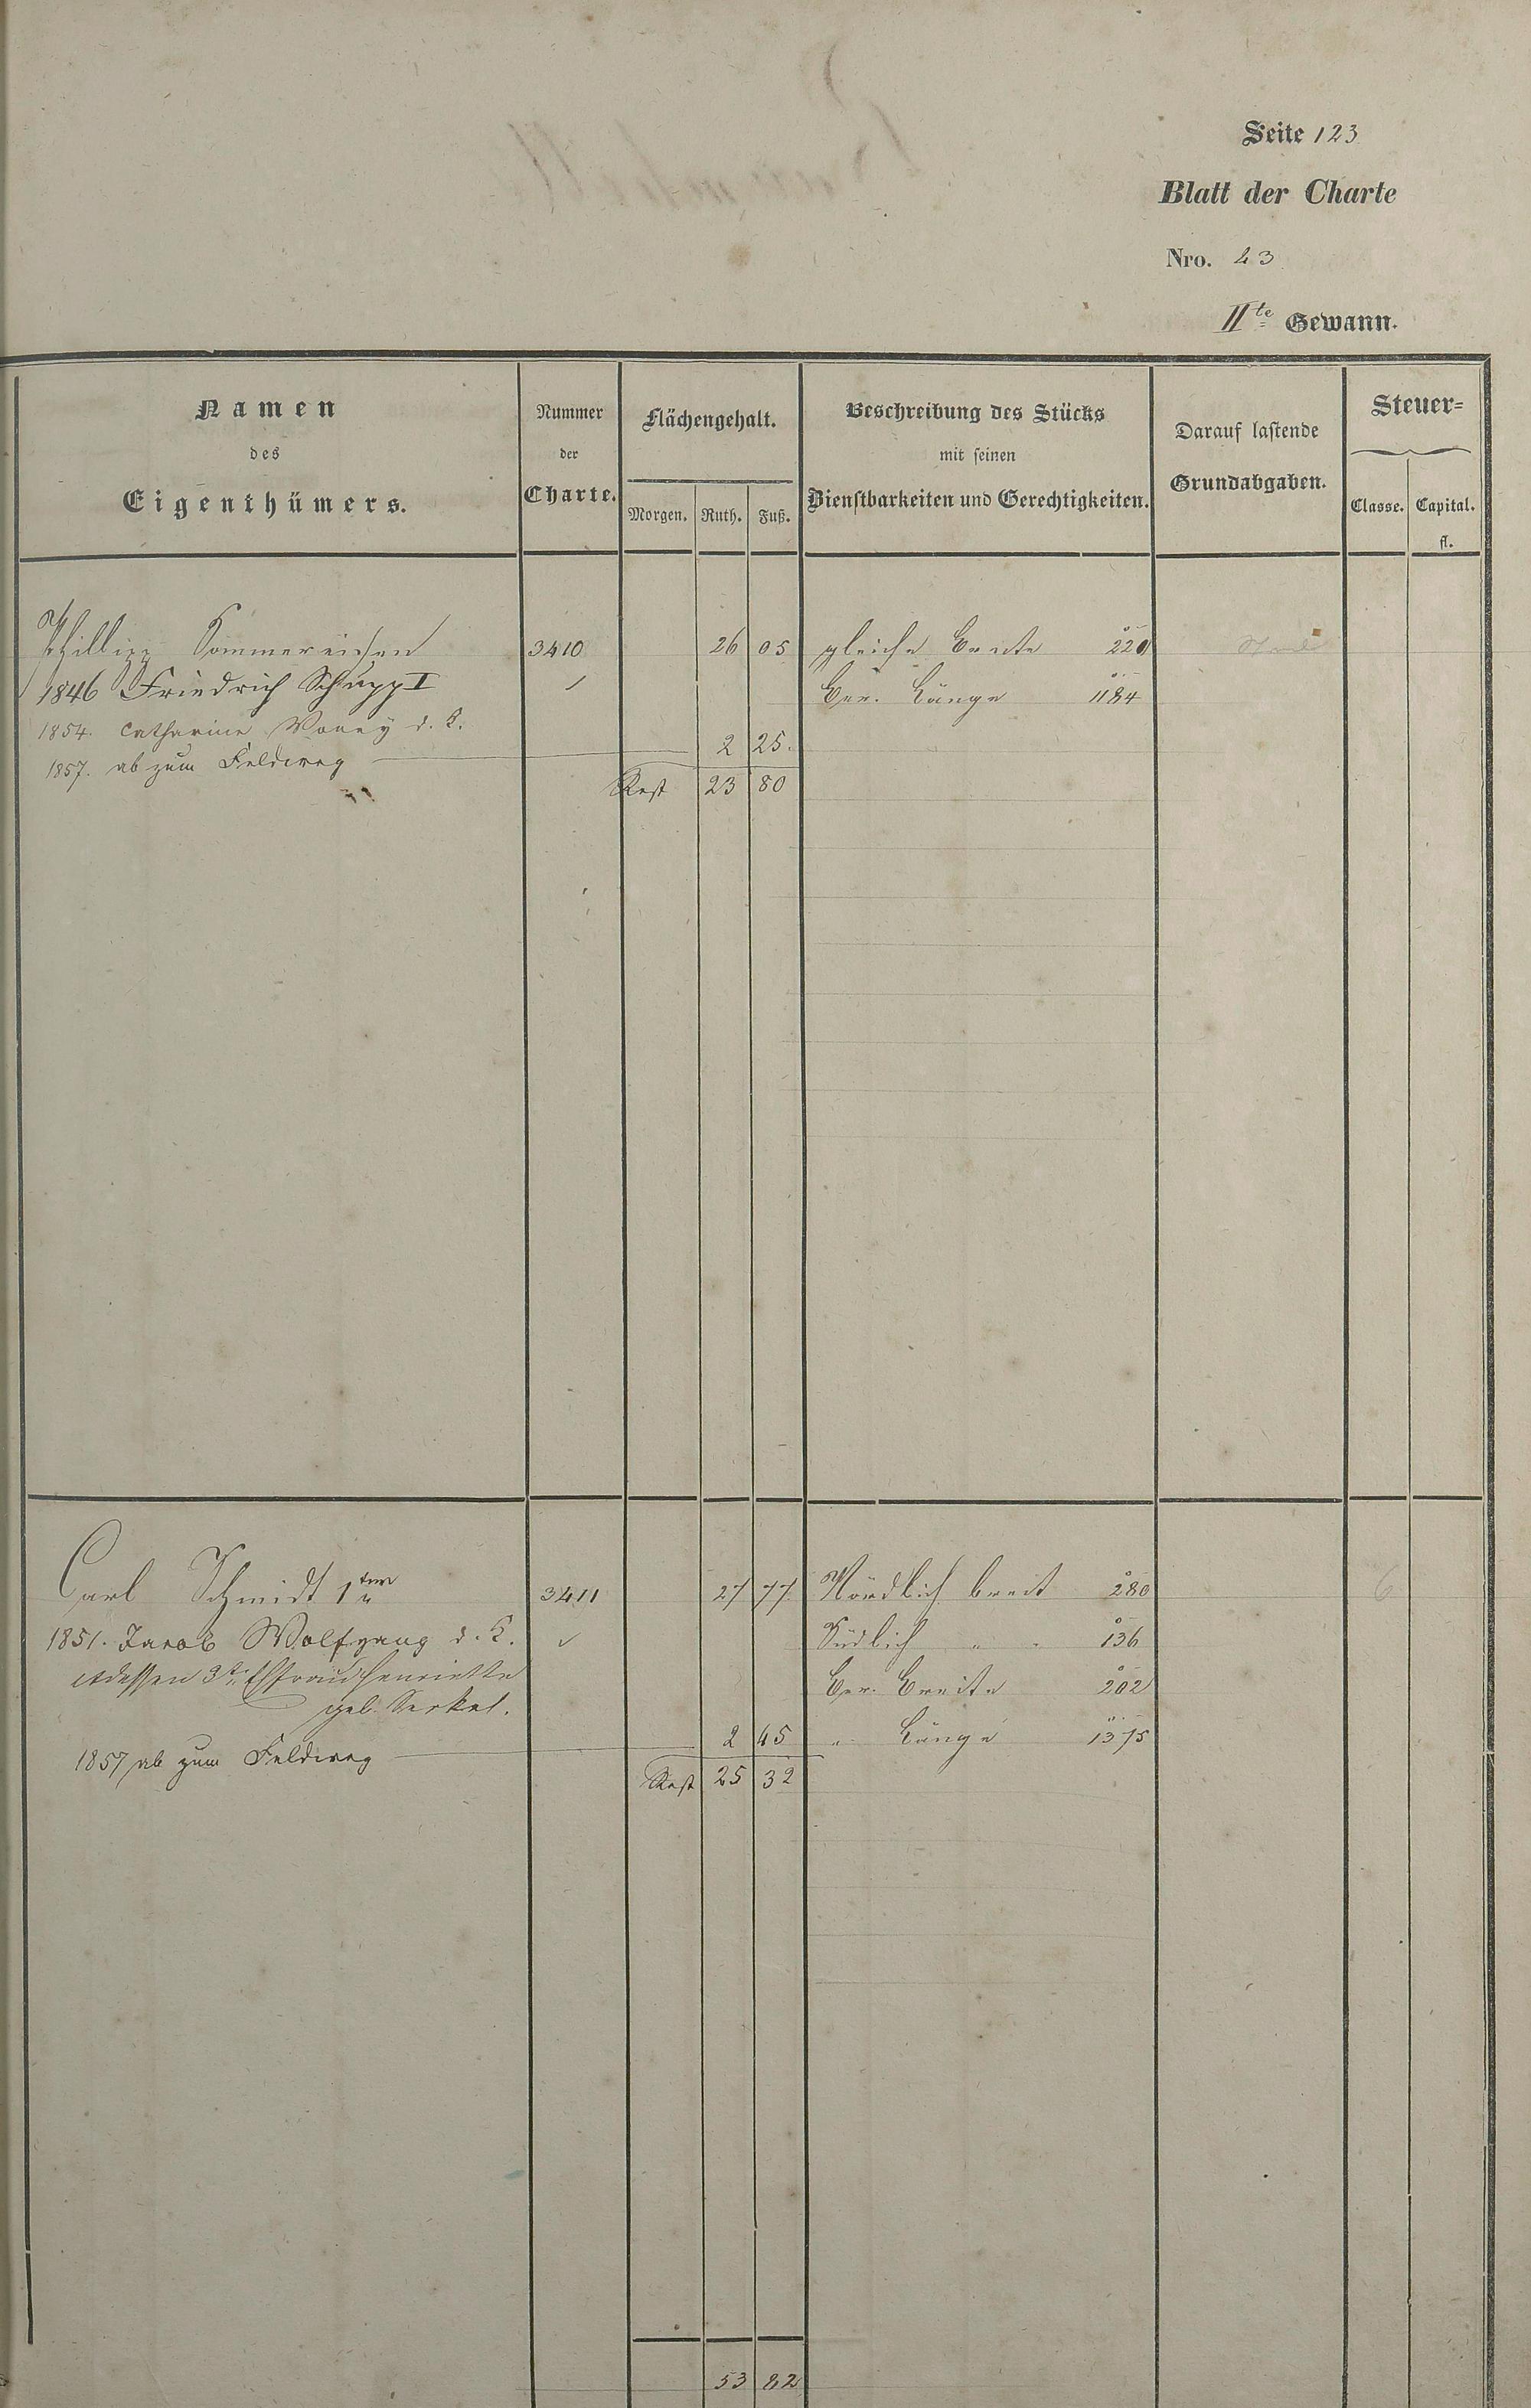 Seite 123
Blatt der Charte
Nro. 23
IIte Gewann.
Namen
des
Eigenthümers.
Nummer
der
Charte.
Flächengehalt.
Morgen. Ruth. Fuß.
Beschreibung des Stücks
mit seinen
Dienstbarkeiten und Gerechtigkeiten.
Darauf lastende
Grundabgaben.
Steuer=
Classe. Capital.
fl.
Phillipp Sommereisen 3410 26 05 gleiche Breite 220
1846 Friedrich Schupp I Ber. Länge 1184
1854. Catharine d. K.
1857. ab zum Feldweg 2 25.
Rest 23 80
Carl Schmidt 1ter 3411 27 77. Nördlich breit 280
1851. Jacob Wolfgang d. K. Südlich " " 136
dessen 3te Ehefrau Henriette Ber. Breite 202
geb.
" Länge 1375
1857 ab zum Feldweg 2 45
Rest 25 32
6
53 82